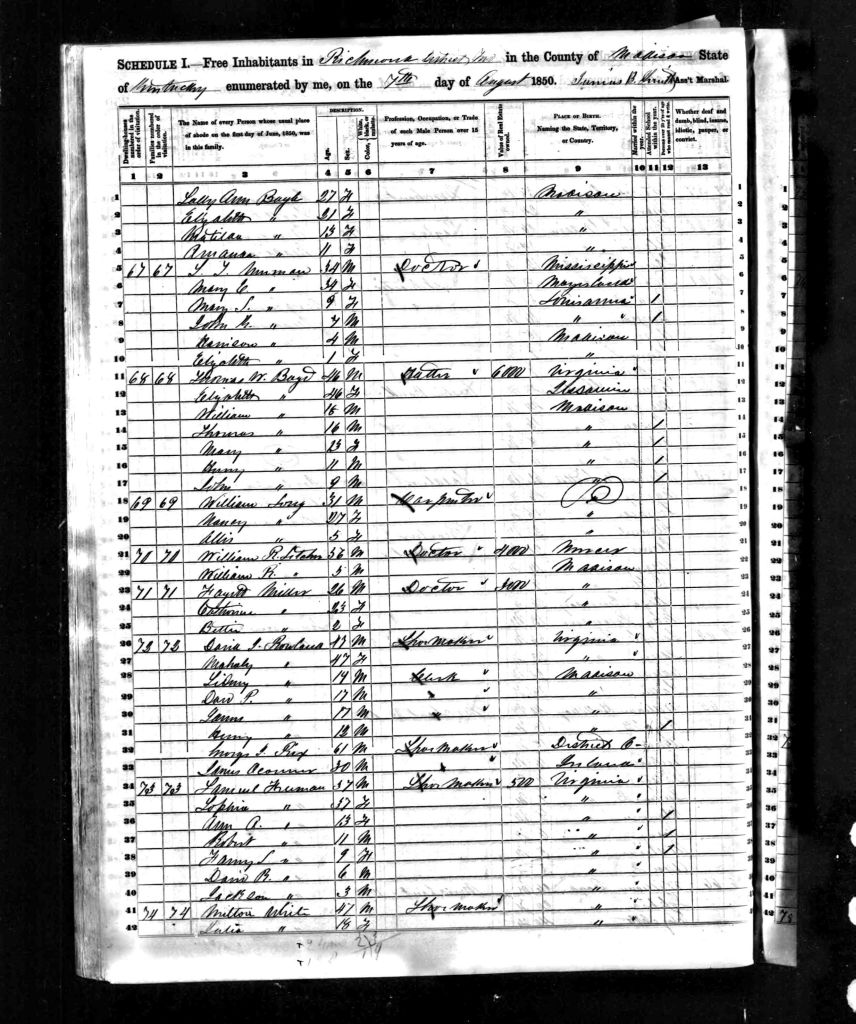 SCHEDULE I.—Free Inhabitants in Richmond District No in the County of Madison State
of Kentucky enumerated by me, on the 7th day of August 1850. Ass't Marshal.
Dwelling-houses numbered in the order of visitation.
Families numbered in the order of visitation.
The Name of every Person whose usual place of abode on the first day of June, 1850, was in this family.
DESCRIPTION.
Age.
Sex.
Color, White, black, or mulatto.
Profession, Occupation, or Trade of each Male Person over 15 years of age.
Value of Real Estate owned.
PLACE OF BIRTH. Naming the State, Territory, or Country.
Married within the year.
Attended School within the year.
Persons over 20 y'rs of age who cannot read & write.
Whether deaf and dumb, blind, insane, idiotic, pauper, or convict.
1 2 3 4 5 6 7 8 9 10 11 12 13
1 Ann 27 F Madison 1
2 Elizabeth " 21 F " 2
3 Matilda " 13 F " 3
4 " 11 F " 4
5 67 67 34 M Doctor Mississippi 5
6 Mary C. " 34 F Maryland 6
7 Mary S. " 9 F Louisianna 1 7
8 John " 7 M " 1 8
9 Harrison " 4 M Madison 9
10 Elizabeth " 1 F " 10
11 68 68 Thomas W. Boyd 46 M Hatter 6000 Virginia 11
12 Elizabeth " 46 F 12
13 William " 18 M Madison 13
14 Thomas " 16 M " 1 14
15 Mary " 23 F " 1 15
16 Henry " 11 M " 1 16
17 John " 9 M " 1 17
18 69 69 William Long 31 M Carpenter 18
19 Nancy " 27 F " 19
20 " 5 F " 20
21 70 70 William R. Letcher 56 M Doctor " 4000 Mercer 21
22 William R. " 5 M Madison 22
23 71 71 Miller 26 M Doctor 3000 " 23
24 Catherine " 23 F " 24
25 Bettie " 2 F " 25
26 72 72 David I. Rowland 47 M Shoe Maker Virginia 26
27 Mahaly " 47 F " 27
28 Sidney " 19 M Clerk " Madison 28
29 Davi P. " 17 M " 29
30 James " 17 M " 30
31 Henry " 12 M " 1 31
32 George I. Rex 61 M Shoe Maker District C 32
33 James Oconner 30 M Ireland 33
34 73 73 Samuel Freeman 37 M Shoe Maker 500 Virginia 34
35 Sophia " 37 F " 35
36 Ann R. " 13 F " 1 36
37 Robert " 11 M " 1 37
38 Fanny S. " 9 F " 1 38
39 David B. " 6 M " 39
40 Jackson " 3 M " 40
41 74 74 Milton White 47 M Shoe Maker " 41
42 Julia " 18 F " 42